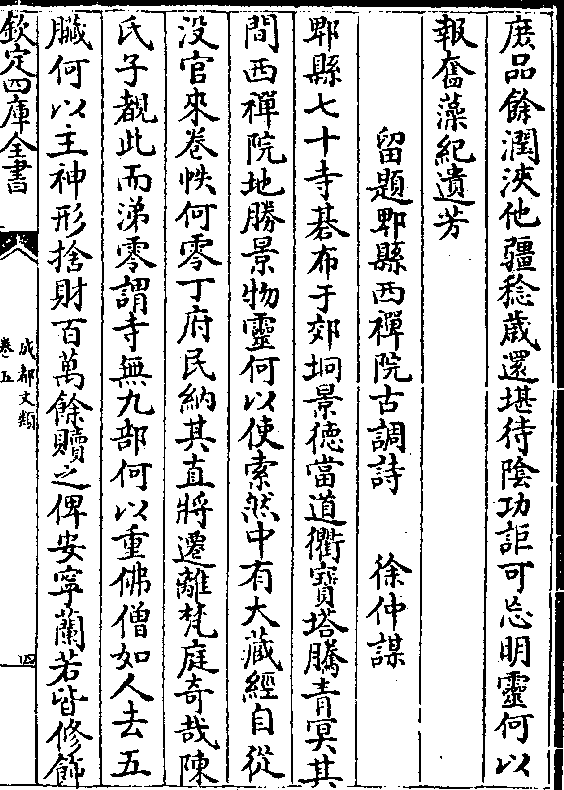 庶品餘潤浹他疆稔歲還堪待陰功詎可忘明靈何以
報奮藻紀遺芳
留題郫縣西禪院古調詩 徐仲謀
郫縣七十寺碁布于郊坰景德當道衢寳塔騰青冥其
間西禪院地勝景物靈何以使索然中有大藏經自從
没官來卷帙何零丁府民納其直將遷離梵庭竒哉陳
氏子覩此而涕零謂寺無九部何以重佛僧如人去五
臟何以主神形捨財百萬餘贖之俾安寧蘭若皆修飾
欽定四庫全書
成都文類
卷五
四